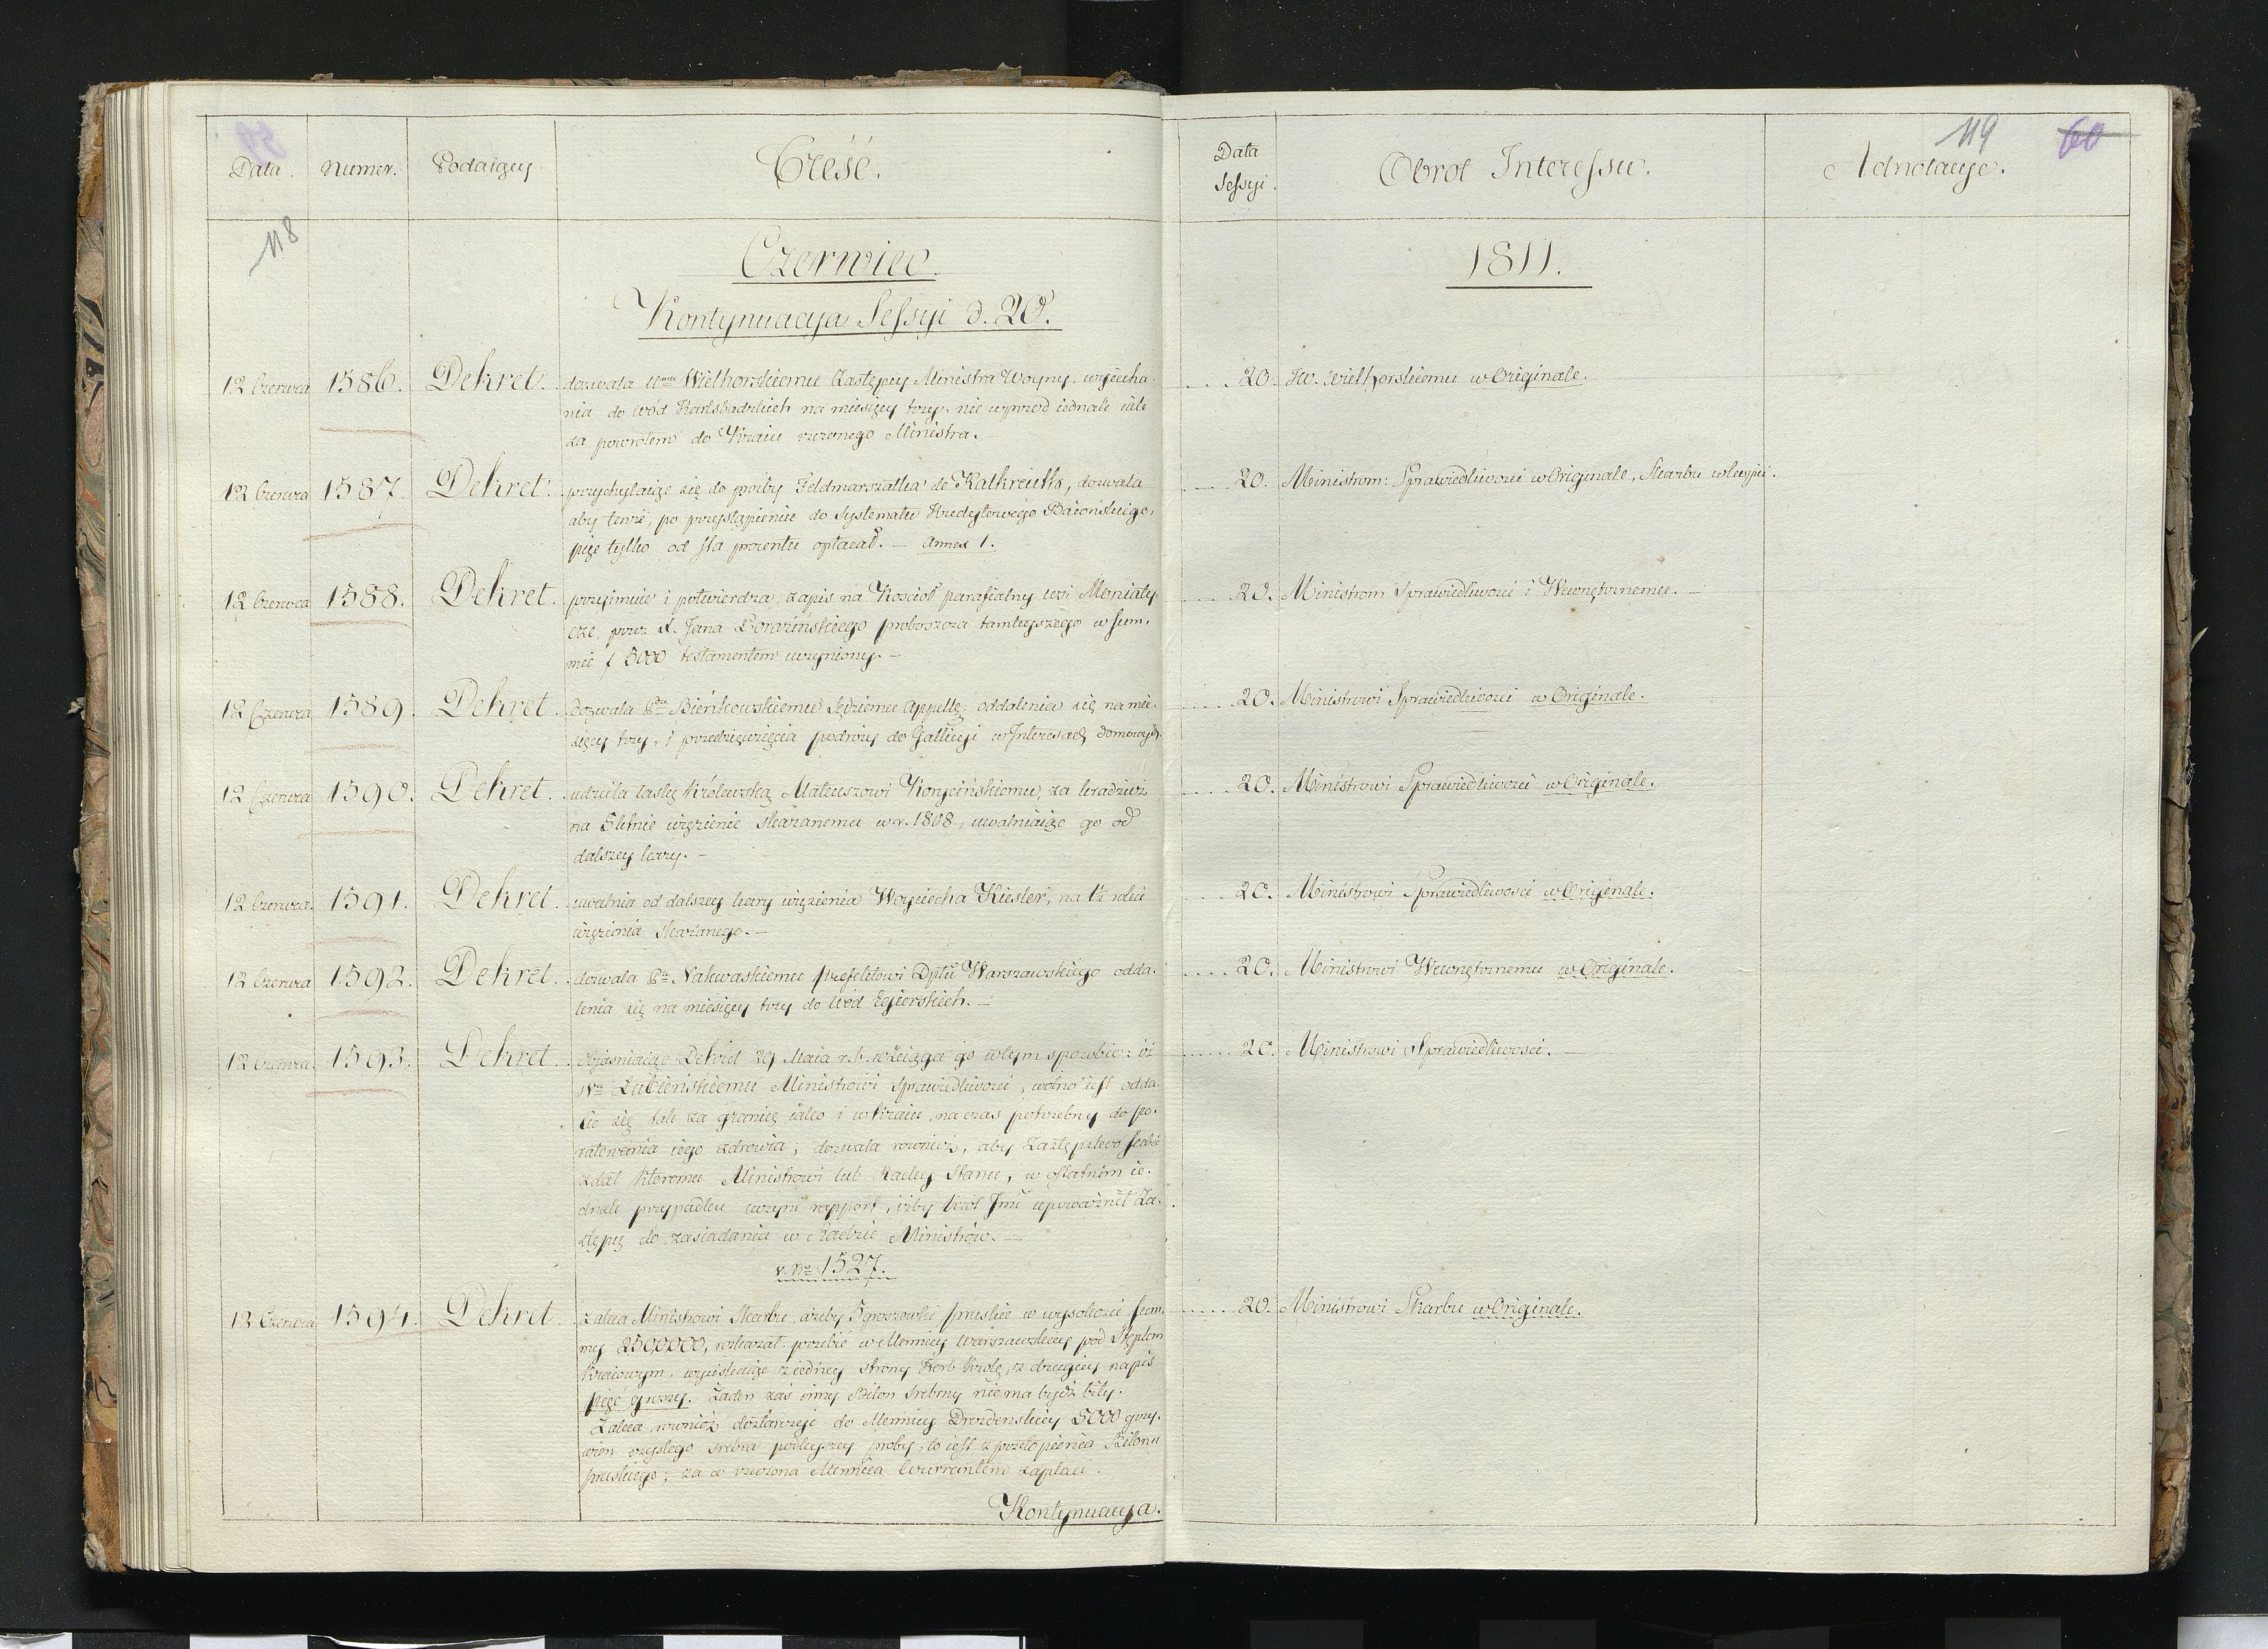 Data.
Numer.
Podaiący.
Treść.
118
Czerwiec.
Kontynuacya Sessyi d. 20.
12 Czerwca 1586. Dekret. dozwala Wielhorskiemu Zastępcy Ministra Woyny, wyiecha-
nia do wód Karlsbadzkich na miesięcy trzy, nie wprzod iednak iak
za powrotem do Kraiu rzeczonego Ministra. —
12 Czerwca 1587. Dekret. przychylaiąc się do prośby Feldmarszałka de Kalkreuth, dozwala
aby tenże, po przystąpieniu do Systematu Kredytowego
pięć tylko od sta procentu opłacał. — Annex 1.
12 Czerwca 1588. Dekret. przyimuie i potwierdza zapis na Kościoł parafialny wsi Moniaty-
cze, przez X. Jana proboszcza tamteyszego w sum-
mie f 5000 testamentem uczyniony. —
12 Czerwca 1589. Dekret. Dozwala Bieńkowskiemu Sędziemu Appell: oddalenia się na mie-
sięcy trzy, i przedsięwzięcia podroży do Gallicyi w Interesach domowych.
12 Czerwca 1590. Dekret. udziela łaskę Krolewską Mateuszowi Korycińskiemu, za kradzież
na 5letnie więzienie skazanemu w r. 1808, uwalniaiąc go od
dalszey kary. —
12 Czerwca. 1591. Dekret. uwalnia od dalszey kary więzienia Woyciecha Kiesler, na
więzienia skazanego. —
12 Czerwca 1592. Dekret. dozwala Nakwaskiemu prefektowi Dptu Warszawskiego odda-
lenia się na miesięcy trzy do wód Egierskich. —
12 Czerwca. 1593. Dekret. obiaśniaiąc Dekret 29 Maia r.b. rozciąga go w tym sposobie: iż
Łubieńskiemu Ministrowi Sprawiedliwości, wolno iest odda-
lić się tak za granicę iako i w kraiu, na czas potrzebny do po-
ratowania iego zdrowia; dozwala rownież, aby Zastępstwo
zdał ktoremu Ministrowi lub Radcy Stanu, w ostatnim ie-
dnak przypadku uczyni rapport, iżby Krol Jmć upoważnił Za-
stępcę do zasiadania w Radzie Ministrów. —
v. No 1527.
12 Czerwca 1594. Dekret. zaleca Ministrowi Skarbu, ażeby 5groszowki pruskie w wysokości sum-
my 2500000, rozkazał przebić w Mennicy Warszawskiey pod Stęplem
Kraiowym, wyciskaiąc z iedney strony Herb Krolę, z drugiey napis
pięć groszy. Żaden zaś inny Bilon srebrny nie ma bydź bity.
Zaleca rownież dostarczyć do Mennicy Drezdenskiey 5000 grzy-
wien czystego srebra podleyszey proby, to iest z przetopienia Bilonu
pruskiego; za co rzeczona Mennica kurrantem zapłaci.
Kontynuacya.
119
60
Data
Sessyi.
Obrot Interessu.
Adnotacye.
1811.
20. JW. Wielhorskiemu w Originale.
20. Ministrom: Sprawiedliwości w Originale, Skarbu w kopii.
20. Ministrom Sprawiedliwości i Wewnętrznemu. —
20. Ministrowi Sprawiedliwości w Originale.
20. Ministrowi Sprawiedliwości w Originale.
20. Ministrowi Sprawiedliwości w Originale.
20. Ministrowi Wewnętrznemu w Originale.
20. Ministrowi Sprawiedliwości. —
20. Ministrowi Skarbu w Originale.